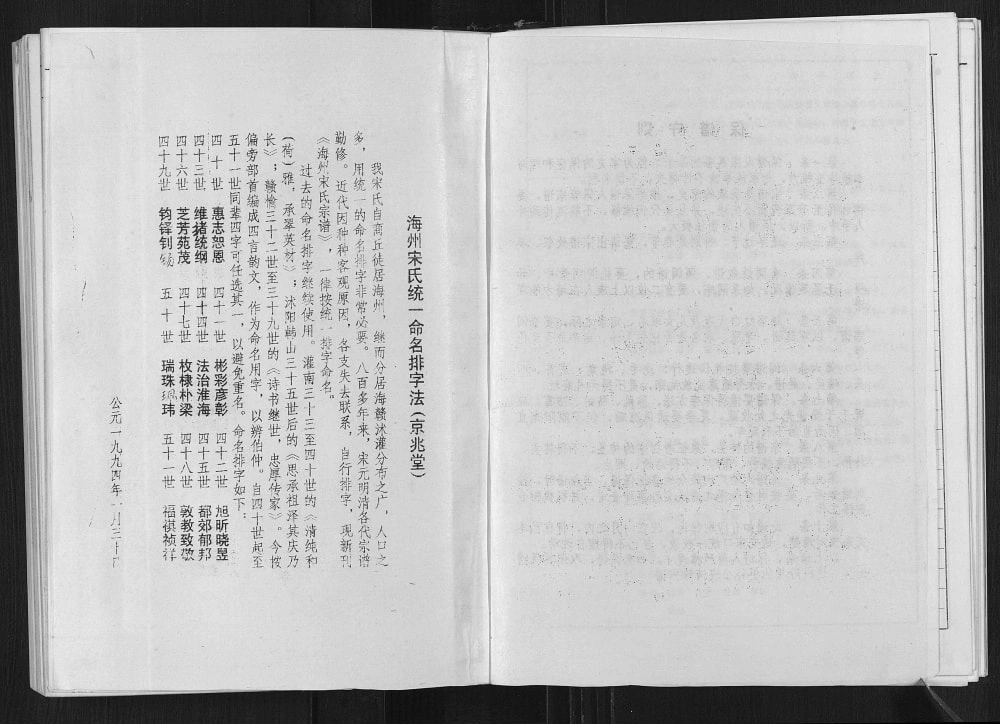 海州宋氏统一命名排字法(京兆堂)
我宋氏自商丘徒居海州，继而分居海赣沭灌分布之广，人口之
多，用统一的命名排字非常必要。八百多年来，宋元明清各代宗谱
勤修。近代因种种客观原因，各支失去联系，自行排字，现新刊
《海州宋氏宗谱》，一律按统一排字命名。
过去的命名排字继续使用。灌南三十三至四十世的《清纯和
(荷)雅，承翠英材》；沭阳韩山三十五世后的《思承祖泽其庆乃
长》；赣榆三十二世至三十九世的《诗书继世，忠厚传家》。今按
偏旁部首编成四言韵文，作为命名用字，以辨伯仲。自四十世起至
五十一世同辈四字可任选其一，以避免重名。命名排字如下：
四十世 惠志恕恩 四十一世 彬彩彦彰 四十二世 旭昕晓昱
四十三世 维绪统纲 四十四世 法治淮海 四十五世 都郊郁邦
四十六世 芝芳苑茂 四十七世 枚棣朴梁 四十八世 敦教致敬
四十九世 钧铎钊 五十世 瑞珠 玮 五十一世 福祺祯祥
公元一九九四年 月三十